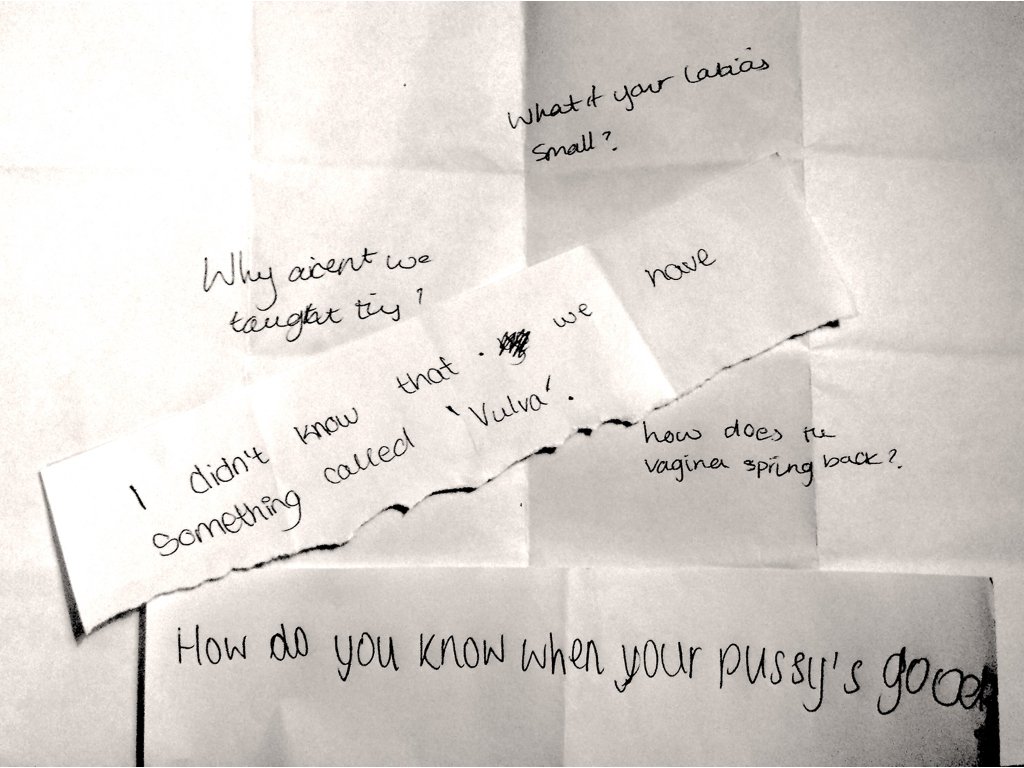 What if your labias
small?
Why arent we
taught this?
I didn't know that we have
something called 'Vulva'.
how does the
vagina spring back?
How do you know when your pussy's good